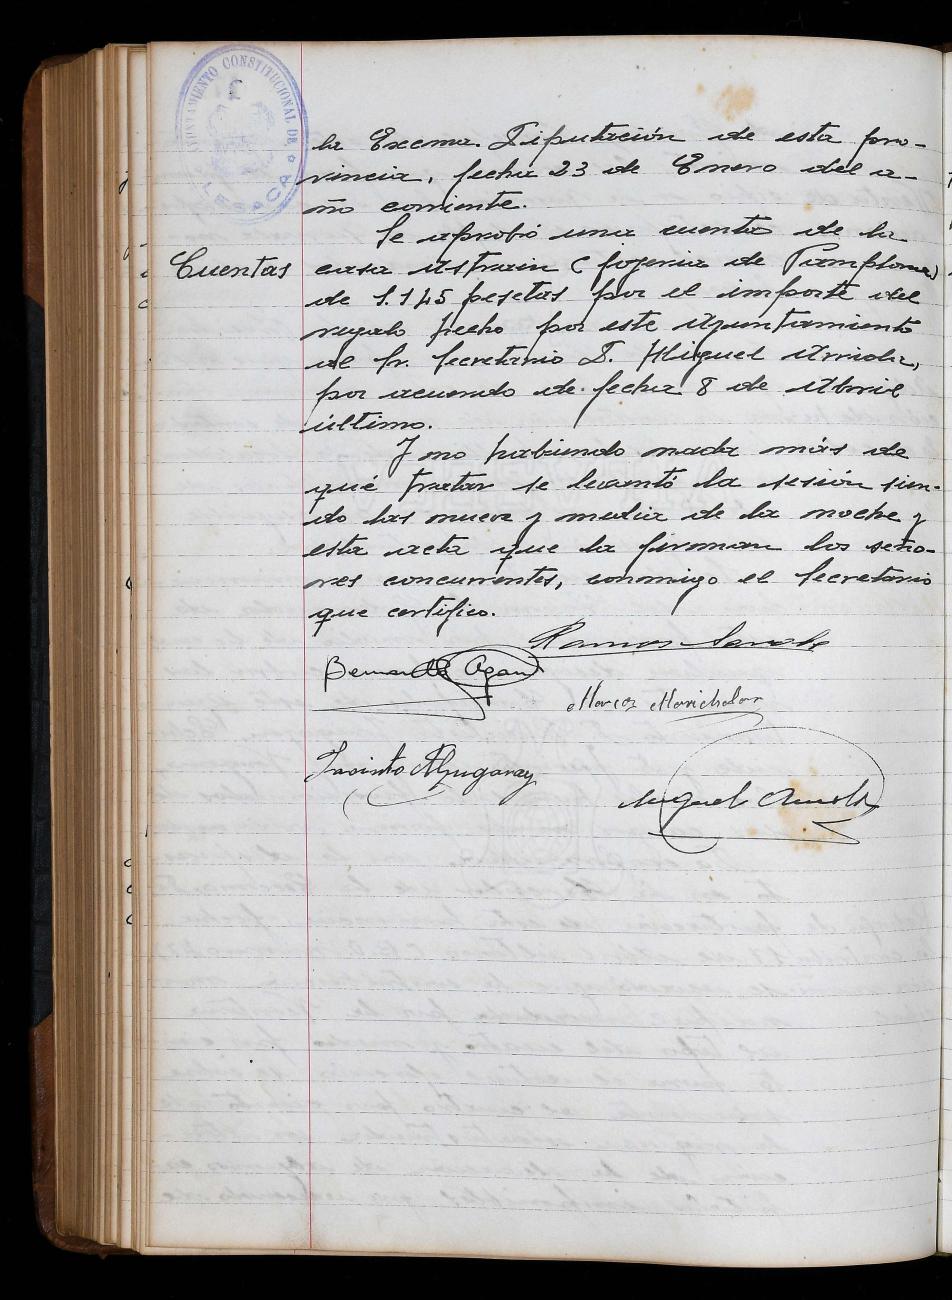 AYUNTAMIENTO CONSTITUCIONAL DE
LESACA
la Excma. Diputación de esta pro-
vincia, fecha 23 de Enero del a-
ño corriente.
Se aprobó una cuenta de la
Cuentas
casa Astrain (Joyeria de Pamplona)
de 1.145 pesetas por el importe del
regalo hecho por este Ayuntamiento
al Sr. Secretario D. Miguel Arriola,
por acuerdo de fecha 8 de Abril
último.
Y no habiendo nada más de
qué tratar se levantó la sesión sien-
do las nueve y media de la noche y
esta acta que la firman los seño-
res concurrentes, conmigo el Secretario
que certifico.
Ramos
Bernardo
Marcos Marichalar
Jacinto Alzugaray
Miguel Arriola